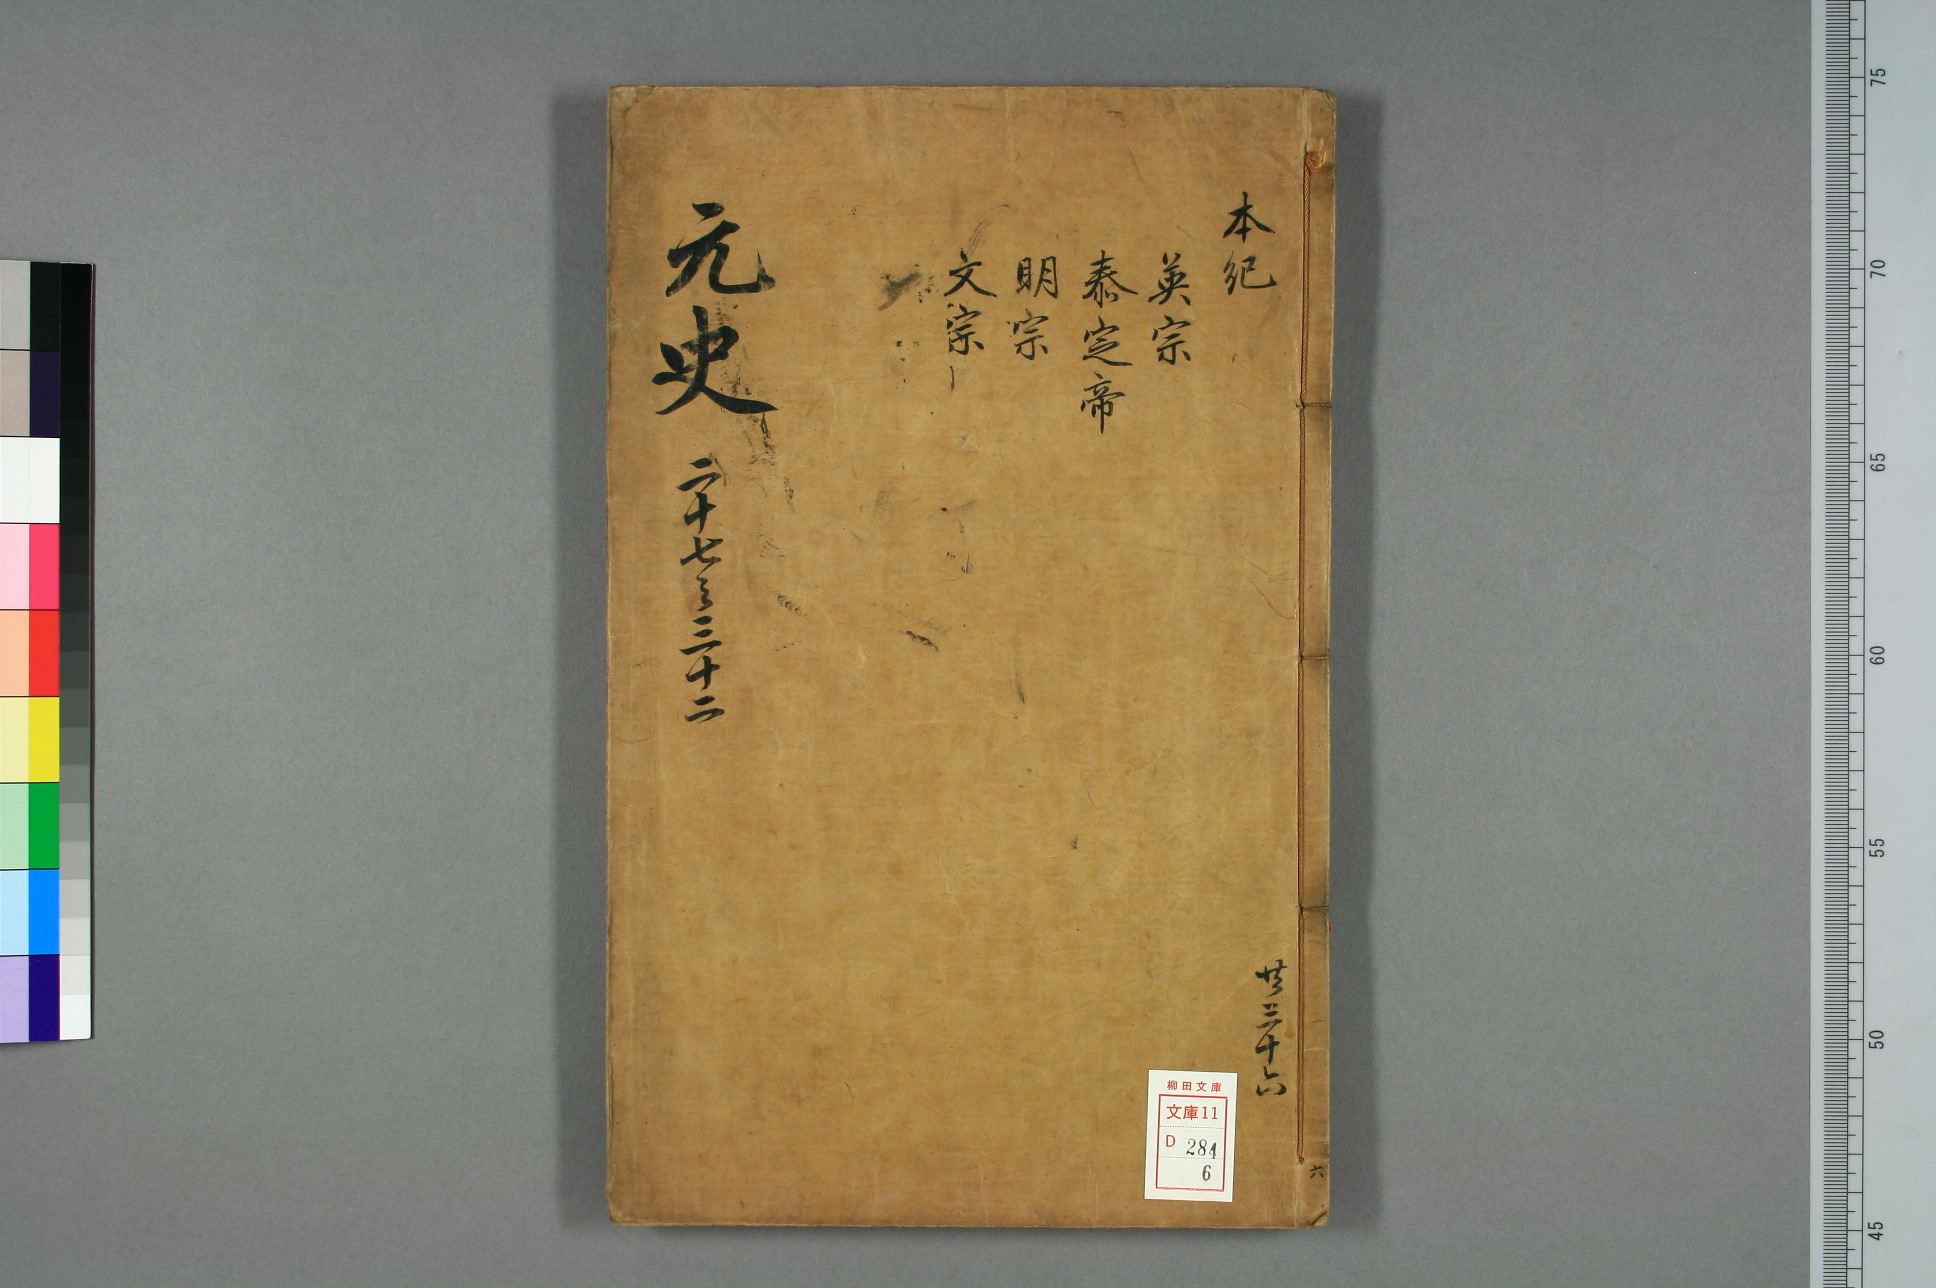 本紀
英宗
泰定帝
明宗
文宗
元史 二十七之三十二
共三十六
六
柳田文庫
文庫11
D 284
6
75
70
65
60
55
50
45